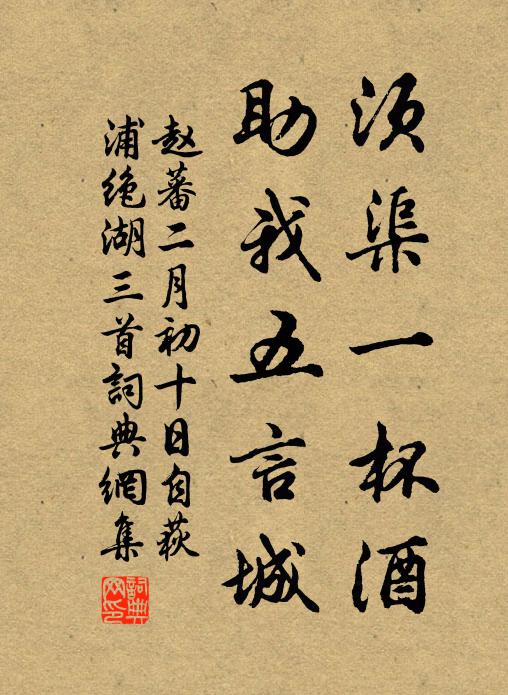 须渠一杯酒
助我五言城
赵蕃二月初十日自荻
浦絶湖三首詞典網集
詞典网印